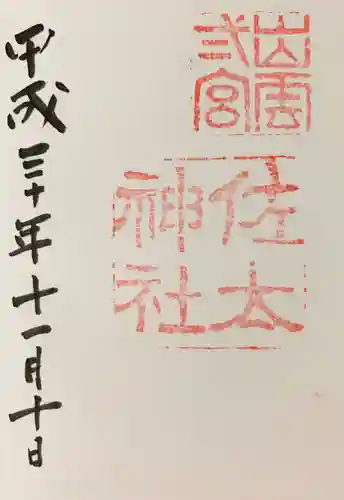 出雲
弍宮
佐太
神社
平成三十年十一月十日